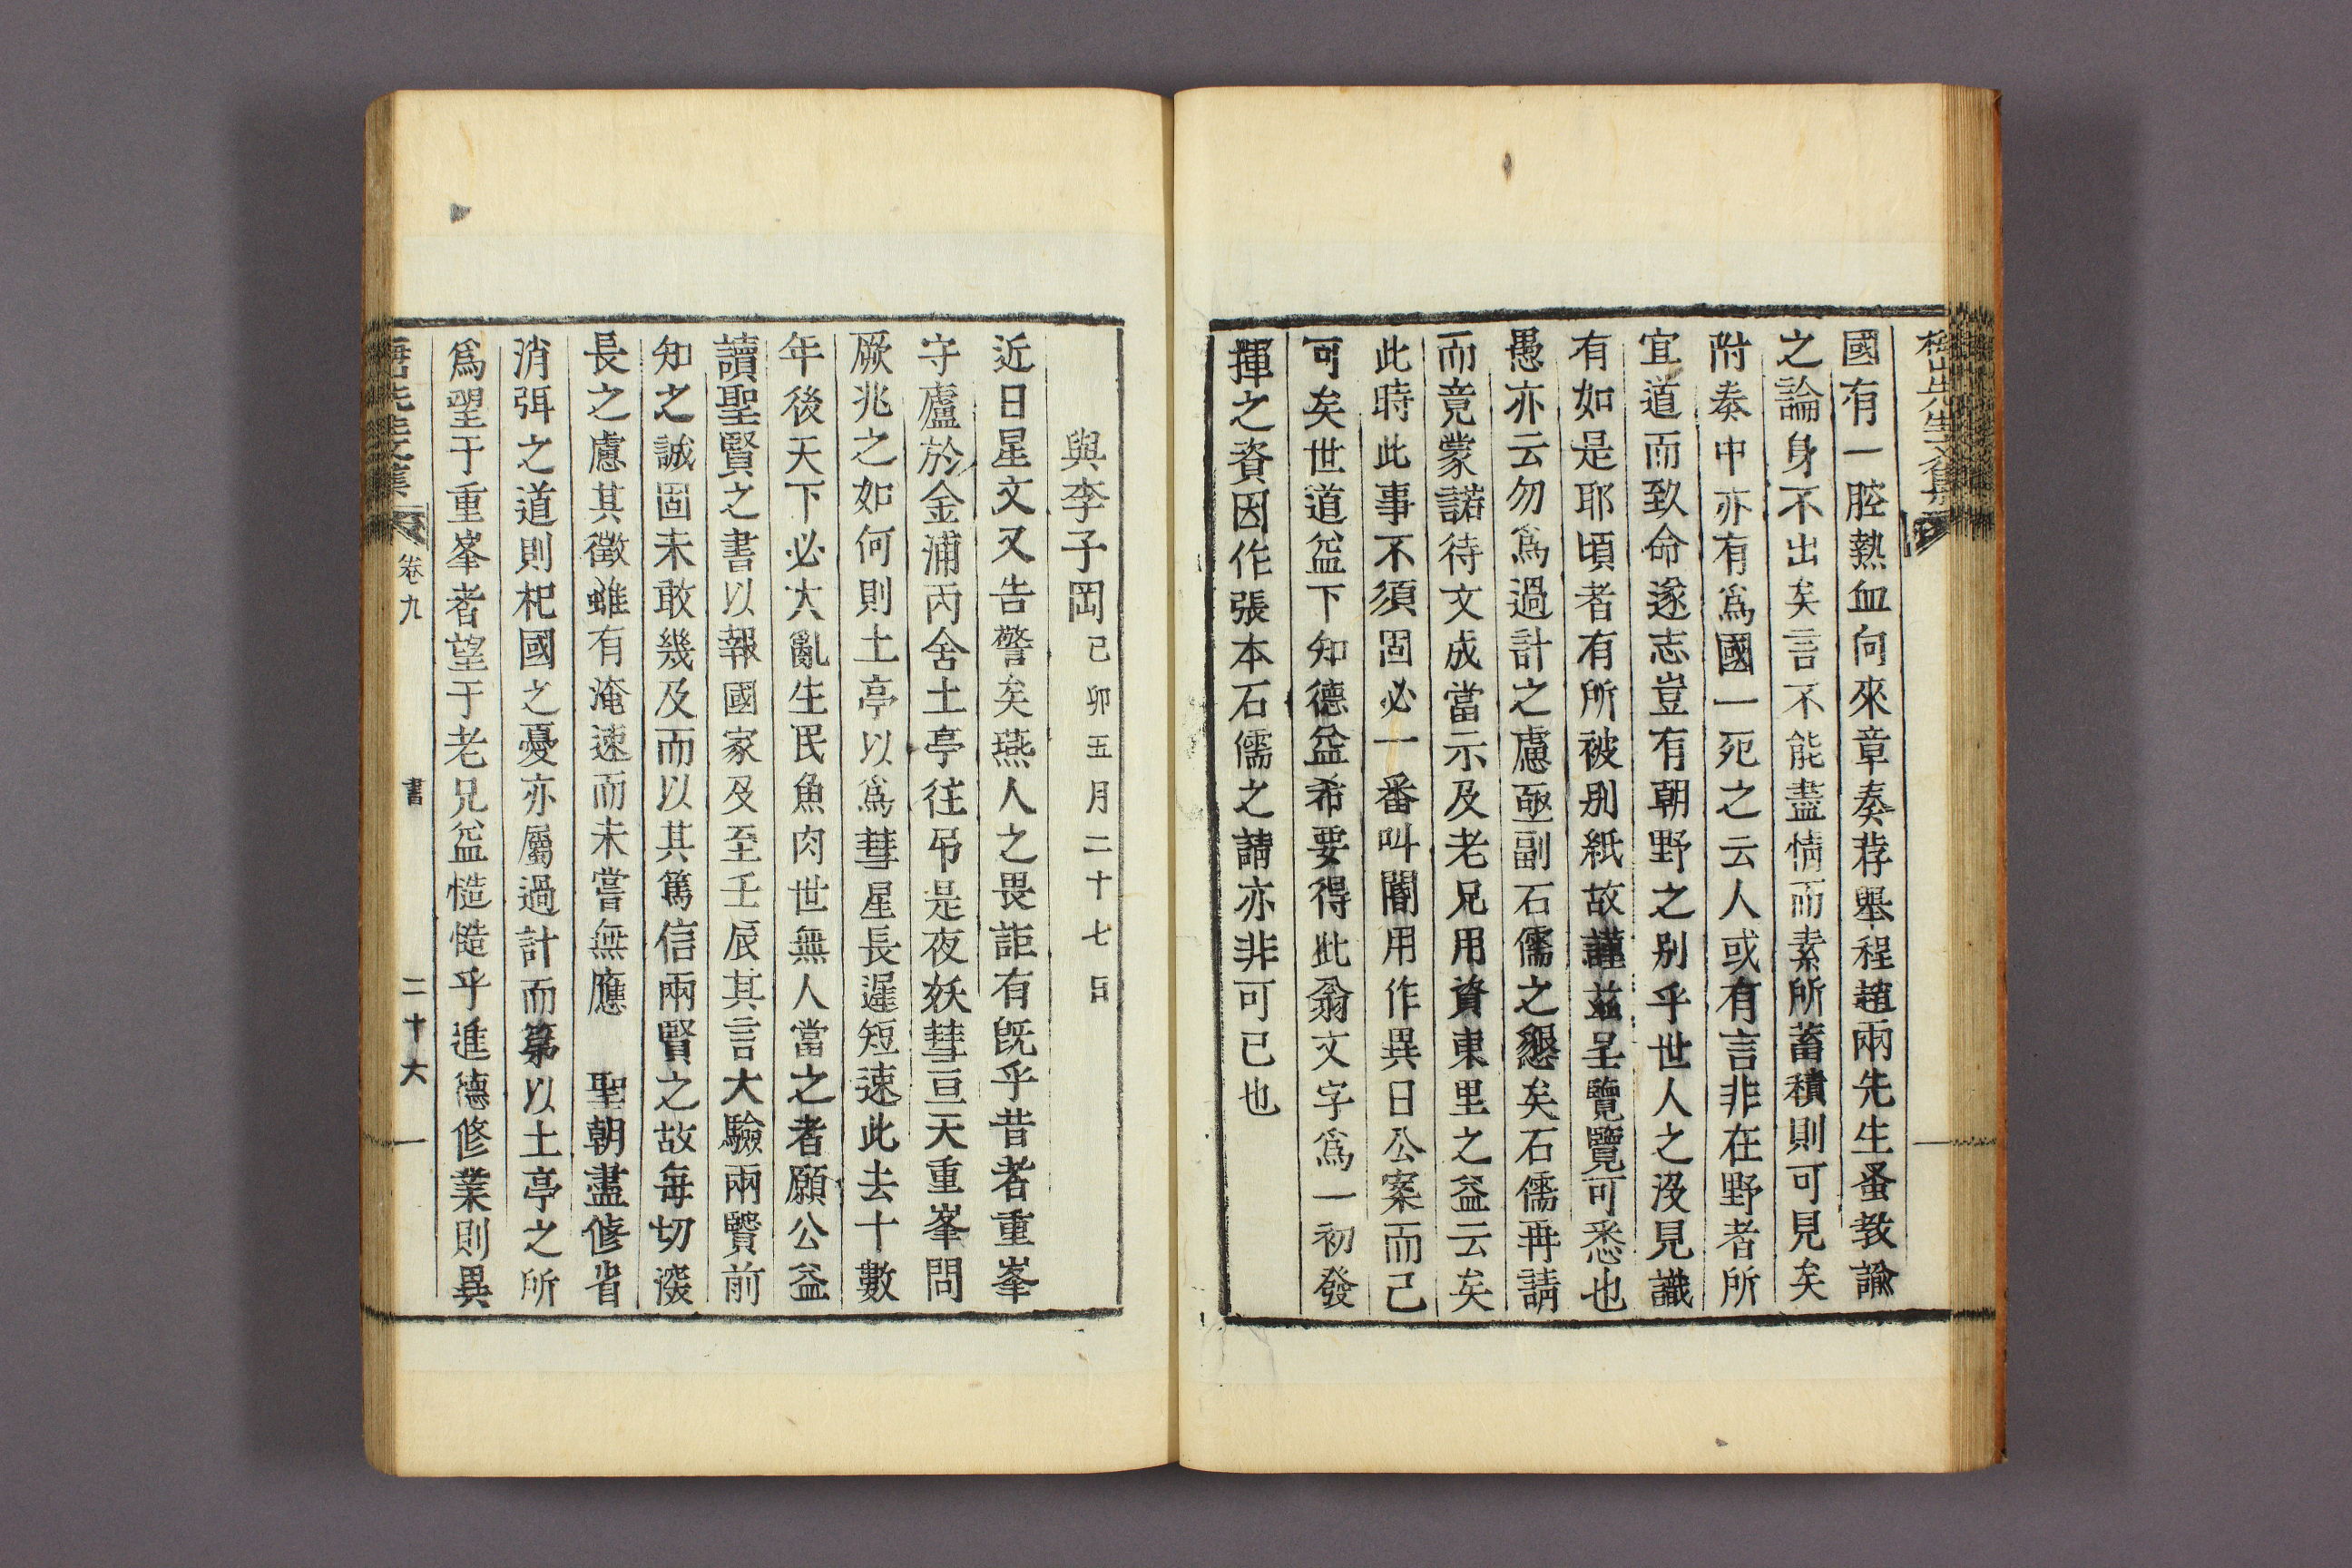 梅山先生文集
國有一腔熱血向來章奏荐舉程趙兩先生蚤敎諭
之論身不出矣言不能盡情而素所蓄積則可見矣
附奏中亦有爲國一死之云人或有言非在野者所
宜道而致命遂志豈有朝野之别乎世人之沒見識
有如是耶頃者有所被别紙故謹茲呈覽覽可悉也
愚亦云勿爲過計之慮亟副石儒之懇矣石儒再請
而竟蒙諾待文成當示及老兄用資東里之益云矣
此時此事不須固必一番叫閽用作異日公案而已
可矣世道益下知德益希要得此翁文字爲一初發
揮之資因作張本石儒之請亦非可已也
與李子岡己卯五月二十七日
近日星文又告警矣燕人之畏詎有旣乎昔者重峯
守廬於金浦丙舍土亭往弔是夜妖彗亘天重峯問
厥兆之如何則土亭以爲彗星長遲短速此去十數
年後天下必大亂生民魚肉世無人當之者願公益
讀聖賢之書以報國家及至壬辰其言大驗兩賢前
知之誠固未敢幾及而以其篤信兩賢之故每切漫
長之慮其徵雖有淹速而未嘗無應　聖朝盡修省
消弭之道則杞國之憂亦屬過計而第以土亭之所
爲望于重峯者望于老兄益慥慥乎進德修業則異
梅山先生文集 卷九 書 二十六